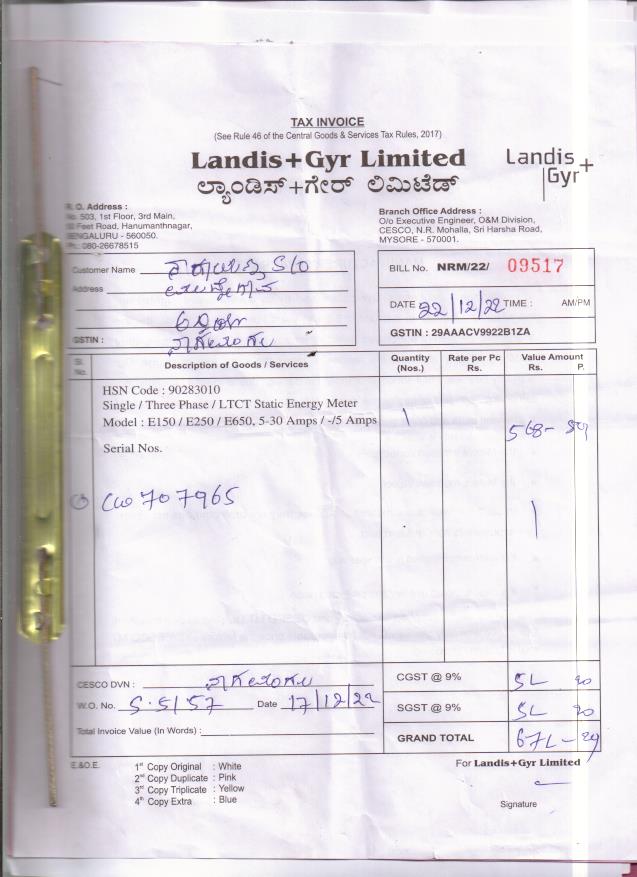 TAX INVOICE
(See Rule 46 of the Central Goods & Services Tax Rules, 2017)
Landis+Gyr Limited
ಲ್ಯಾಂಡಿಸ್+ಗೇರ್ ಲಿಮಿಟೆಡ್
Landis+
Gyr
R. O. Address :
No. 503, 1st Floor, 3rd Main,
Feet Road, Hanumanthnagar,
BENGALURU - 560050.
Ph.: 080-26678515
Branch Office Address :
O/o Executive Engineer, O&M Division,
CESCO, N.R. Mohalla, Sri Harsha Road,
MYSORE - 570001.
Customer Name S/O
Address
GSTIN :
BILL No. NRM/22/ 09517
DATE 22/12/22 TIME : AM/PM
GSTIN : 29AAACV9922B1ZA
Sl. No. Description of Goods / Services Quantity (Nos.) Rate per Pc Rs. Value Amount Rs. P.
HSN Code : 90283010
Single / Three Phase / LTCT Static Energy Meter
Model : E150 / E250 / E650, 5-30 Amps / -/5 Amps 1 568-
Serial Nos.
707965
CESCO DVN :
W.O. No. 5.5157 Date 17/12/22
Total Invoice Value (In Words) :
CGST @ 9%
SGST @ 9%
GRAND TOTAL
E.&O.E.
1st Copy Original : White
2nd Copy Duplicate : Pink
3rd Copy Triplicate : Yellow
4th Copy Extra : Blue
For Landis+Gyr Limited
Signature